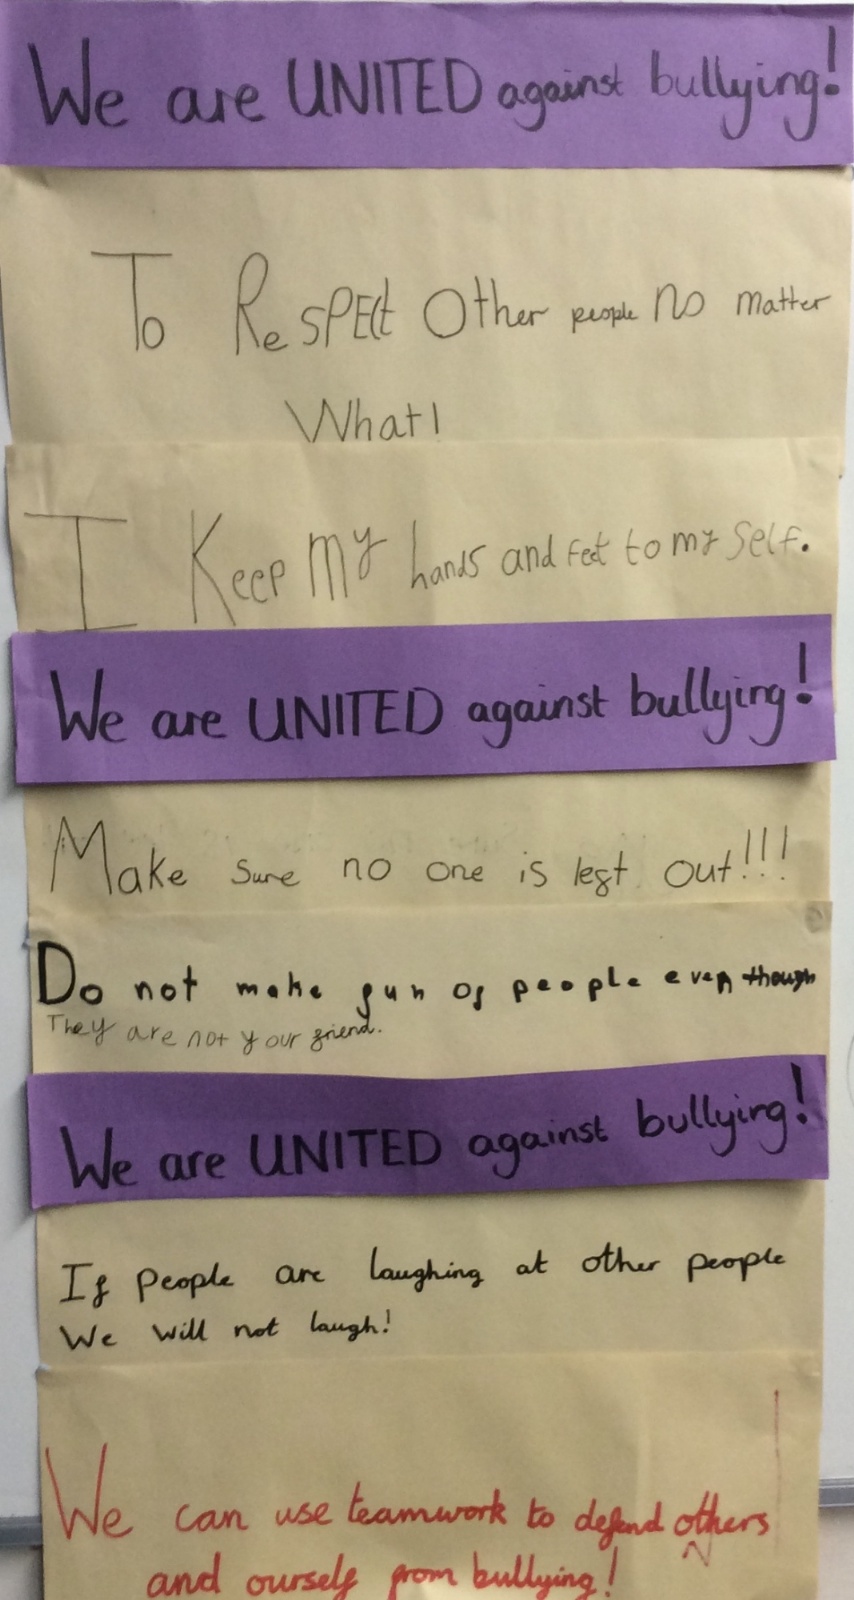 We are UNITED against bullying!
To ResPEct Other people no matter
What!
I Keep My hands and feet to my self.
We are UNITED against bullying!
Make sure no one is left out!!!
Do not make fun of people even though
They are not your friend.
We are UNITED against bullying!
If people are laughing at other people
We will not laugh!
We can use teamwork to defend others
and ourself from bullying!